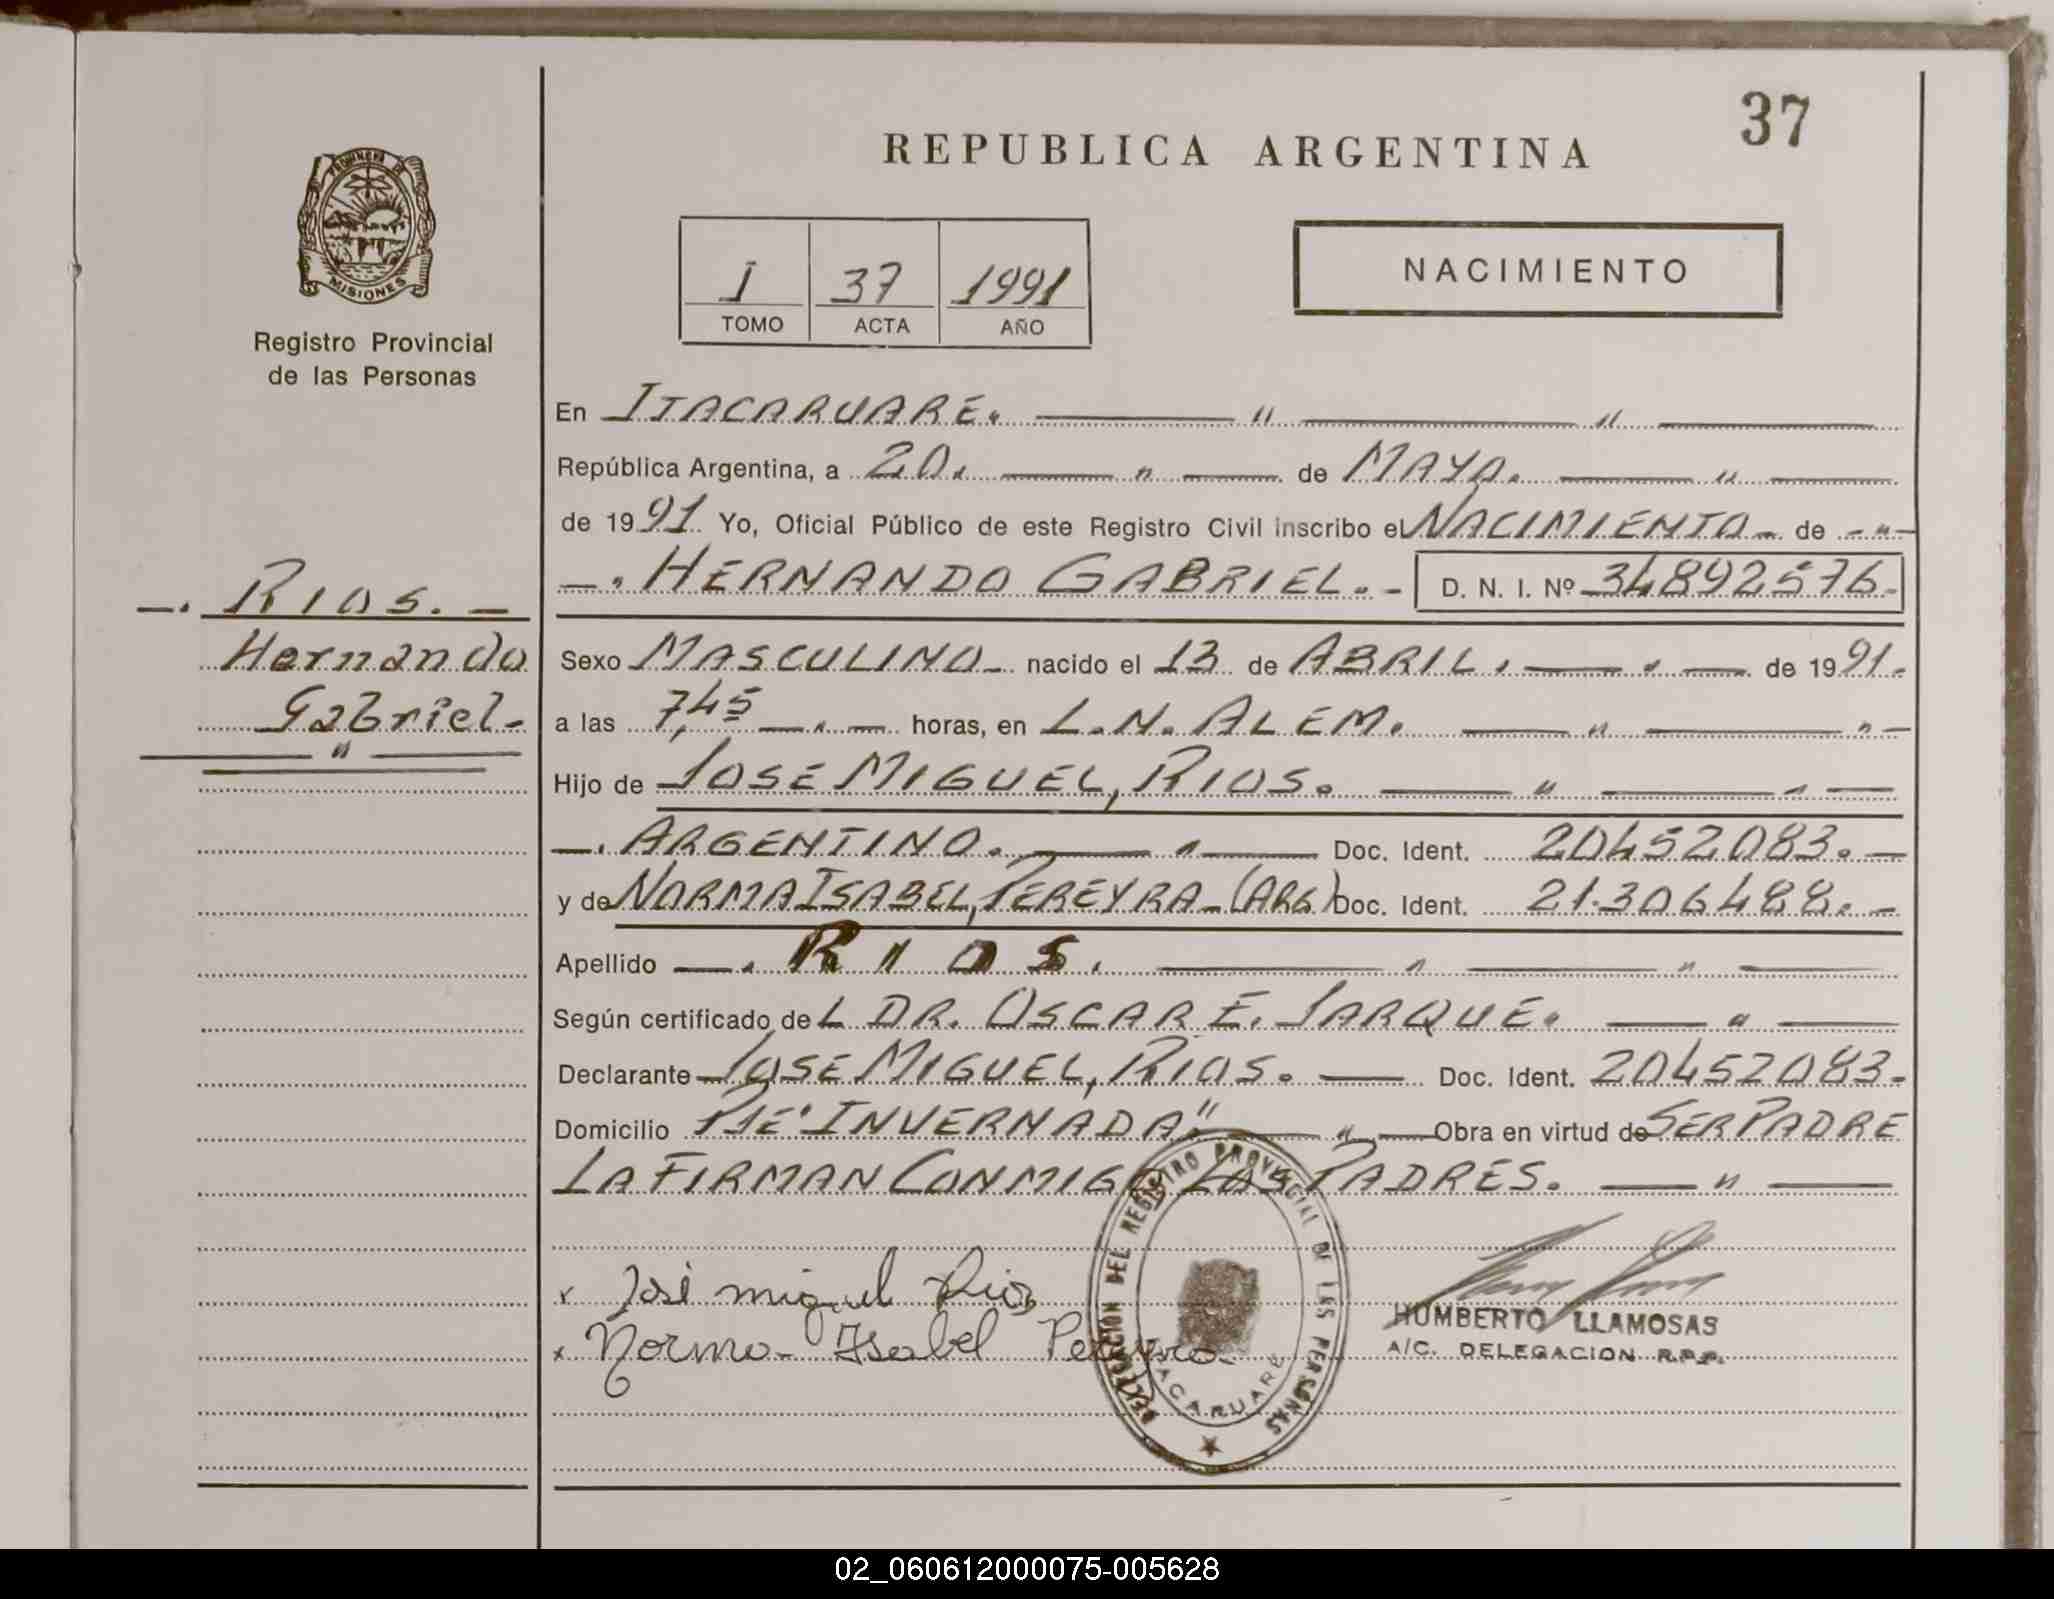 37
REPUBLICA ARGENTINA
PROVINCIA DE
MISIONES
Registro Provincial
de las Personas
I 37 1991
TOMO ACTA AÑO
NACIMIENTO
En ITACARUARE. — " — " —
República Argentina, a 20. — " — de MAYO. — " —
de 1991 Yo, Oficial Público de este Registro Civil inscribo el NACIMIENTO - de - " -
—. HERNANDO GABRIEL. - D. N. I. Nº 34892576-
—. RIOS. —
Hernando
Gabriel-
— " —
Sexo MASCULINO - nacido el 13 de ABRIL. — . — de 1991.
a las 7,45 — . — horas, en L.N. ALEM. — " — " —
Hijo de JOSE MIGUEL, RIOS. — " — " —
—. ARGENTINO. — " — Doc. Ident. 20452083. —
y de NORMA ISABEL, PEREYRA - (ARG) Doc. Ident. 21.306488. —
Apellido —. RIOS. — " — " —
Según certificado de L DR. OSCAR E. JARQUE. — " —
Declarante — JOSE MIGUEL, RIOS. — Doc. Ident. 20452083-
Domicilio PJE "INVERNADA" — " — Obra en virtud de SER PADRE
LA FIRMAN CONMIGO LOS PADRES. — " —
x José miguel Rios
x Norma Isabel Pereyra
DELEGACION DEL REGISTRO PROVINCIAL DE LAS PERSONAS
ITACARUARE
HUMBERTO LLAMOSAS
A/C. DELEGACION R.P.P.
02_060612000075-005628